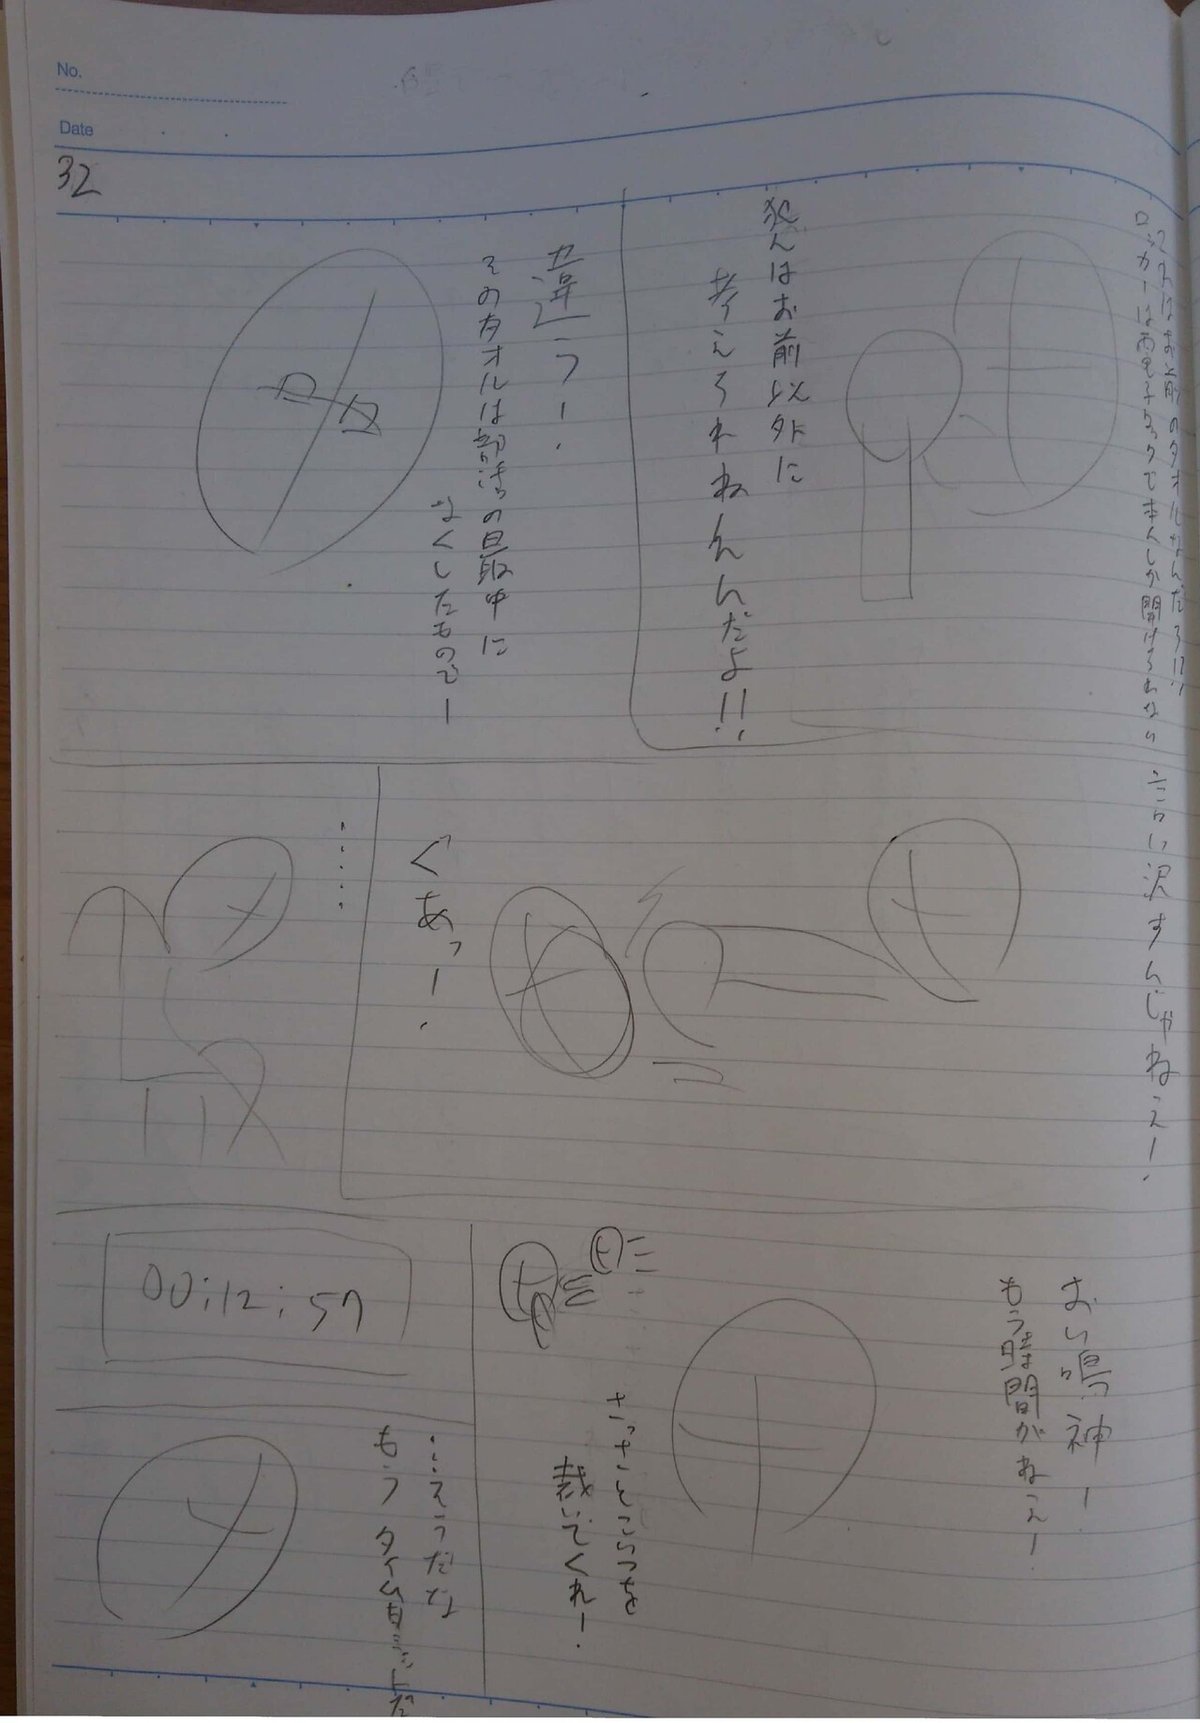 No.
Date
32
これはお前のタオルなんだろ!?
ロッカーは電子ロックで本人しか開けられない
犯人はお前以外に
考えられねえんだよ!!
違うー!
そのタオルは部活の最中に
なくしたものでー
シラこい沢すんじゃねえー!
ぐあっー!
……
おい鳴神ー!
もう時間がねえー!
さっさとこいつを
裁いてくれー!
00:12:57
…そうだな
もうタイムリミットだ